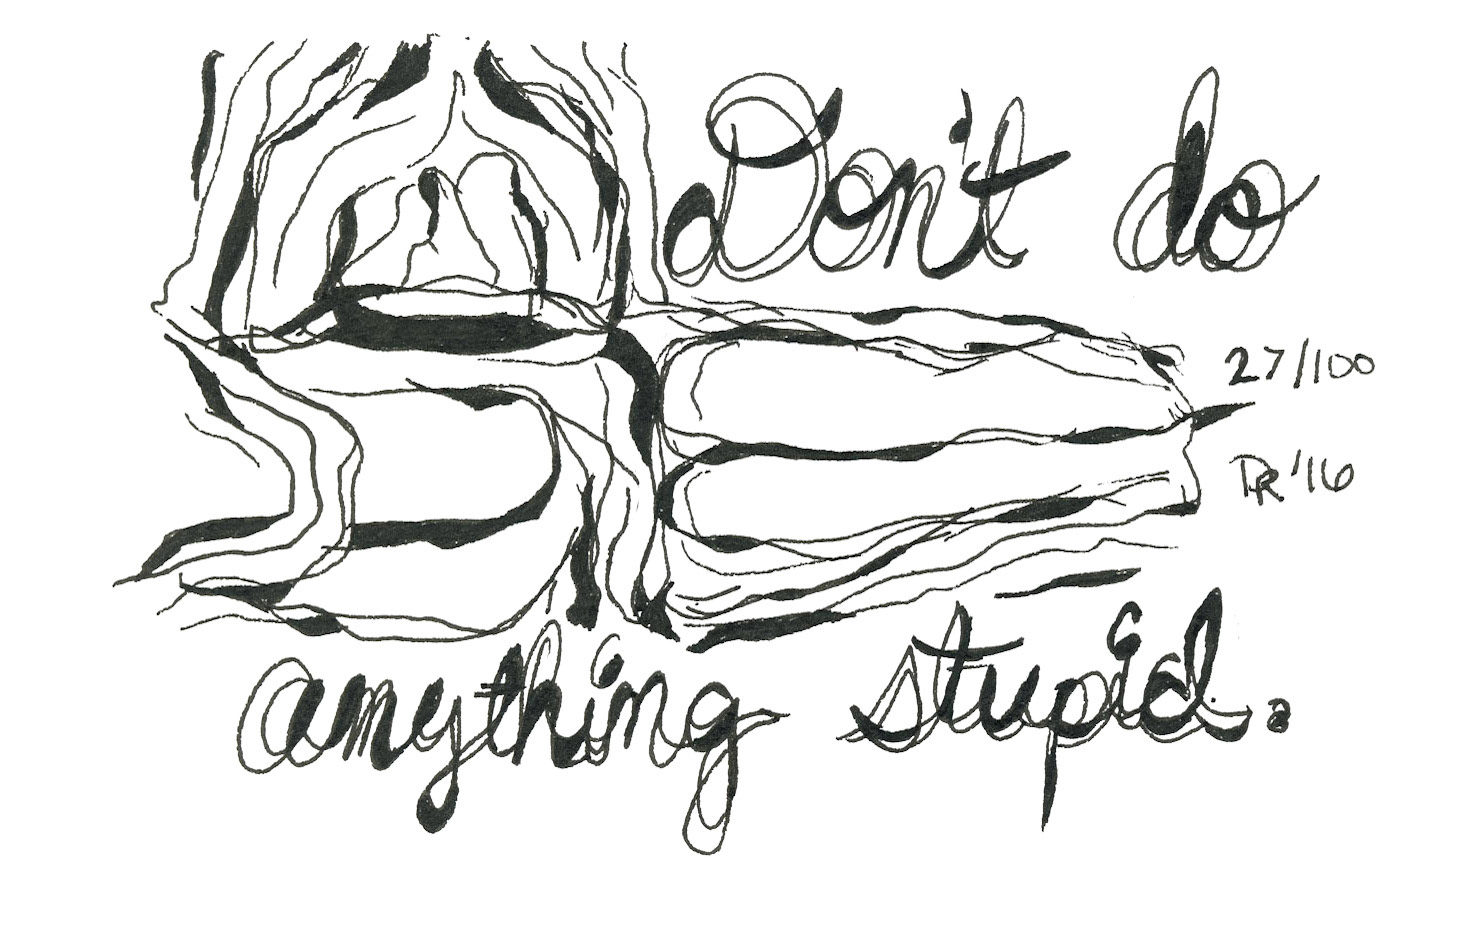 Don't do
27/100
DR '16
anything stupid.